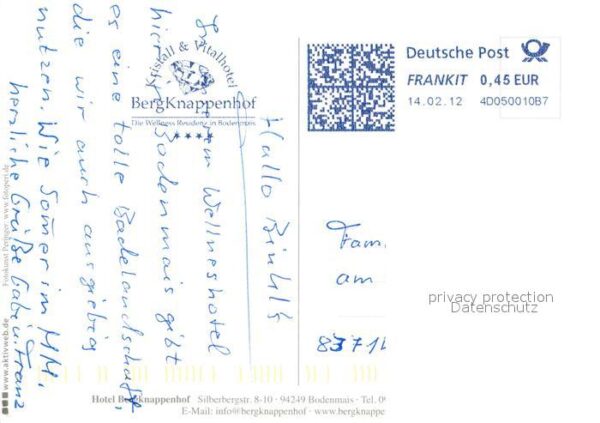 Kristall & Vitalhotel
BergKnappenhof
Die Wellness Residenz in Bodenmais
Hallo
In Wellneshotel
hier in Bodenmais gibt
es eine tolle Badelandschaft,
die wir auch ausgiebig
nutzen. Wie Somer im MM,
herzliche Grüße Gabi u. Franz
Deutsche Post
FRANKIT 0,45 EUR
14.02.12 4D050010B7
Fam.
am
8371
privacy protection
Datenschutz
Fotokunst Peringer www.fotoperi.de
www.aktivweb.de
Hotel BergKnappenhof Silberbergstr. 8-10 · 94249 Bodenmais · Tel. 09
E-Mail: info@bergknappenhof · www.bergknappe